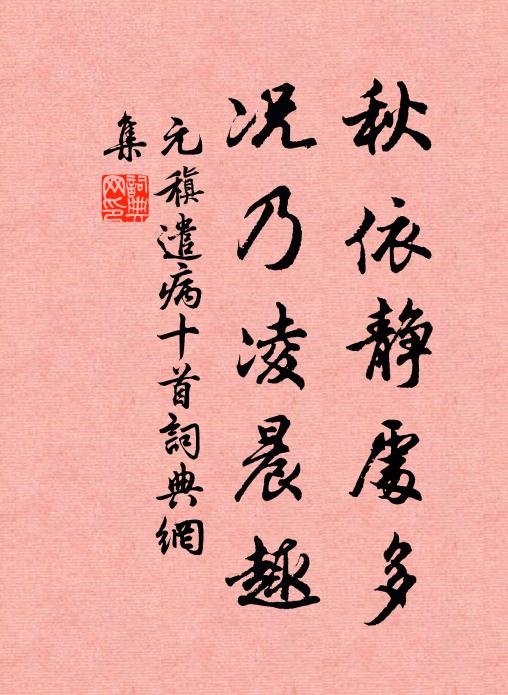 秋依静處多
况乃凌晨趣
元稹遣病十首詞典網
集
詞典
网印